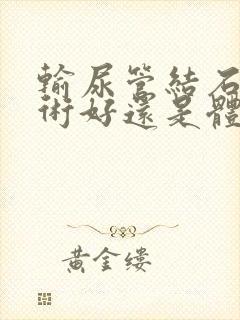 輸尿管結石
術好還是體
黃金縷